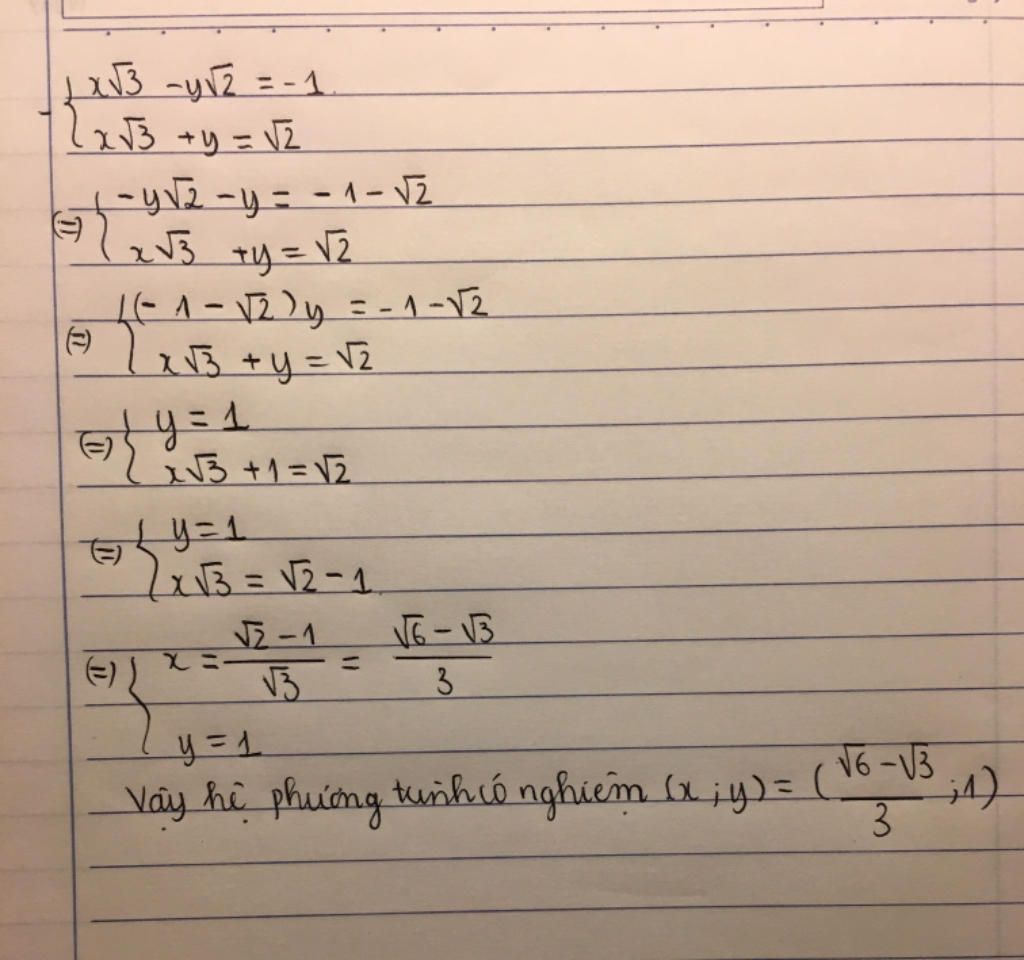 x√3 - y√2 = -1
x√3 + y = √2
(=) -y√2 - y = -1 - √2
x√3 + y = √2
(=) (-1 - √2)y = -1 - √2
x√3 + y = √2
(=) y = 1
x√3 + 1 = √2
(=) y = 1
x√3 = √2 - 1
(=) x = (√2 - 1)/√3 = (√6 - √3)/3
y = 1
Vậy hệ phương trình có nghiệm (x ; y) = ((√6 - √3)/3 ; 1)